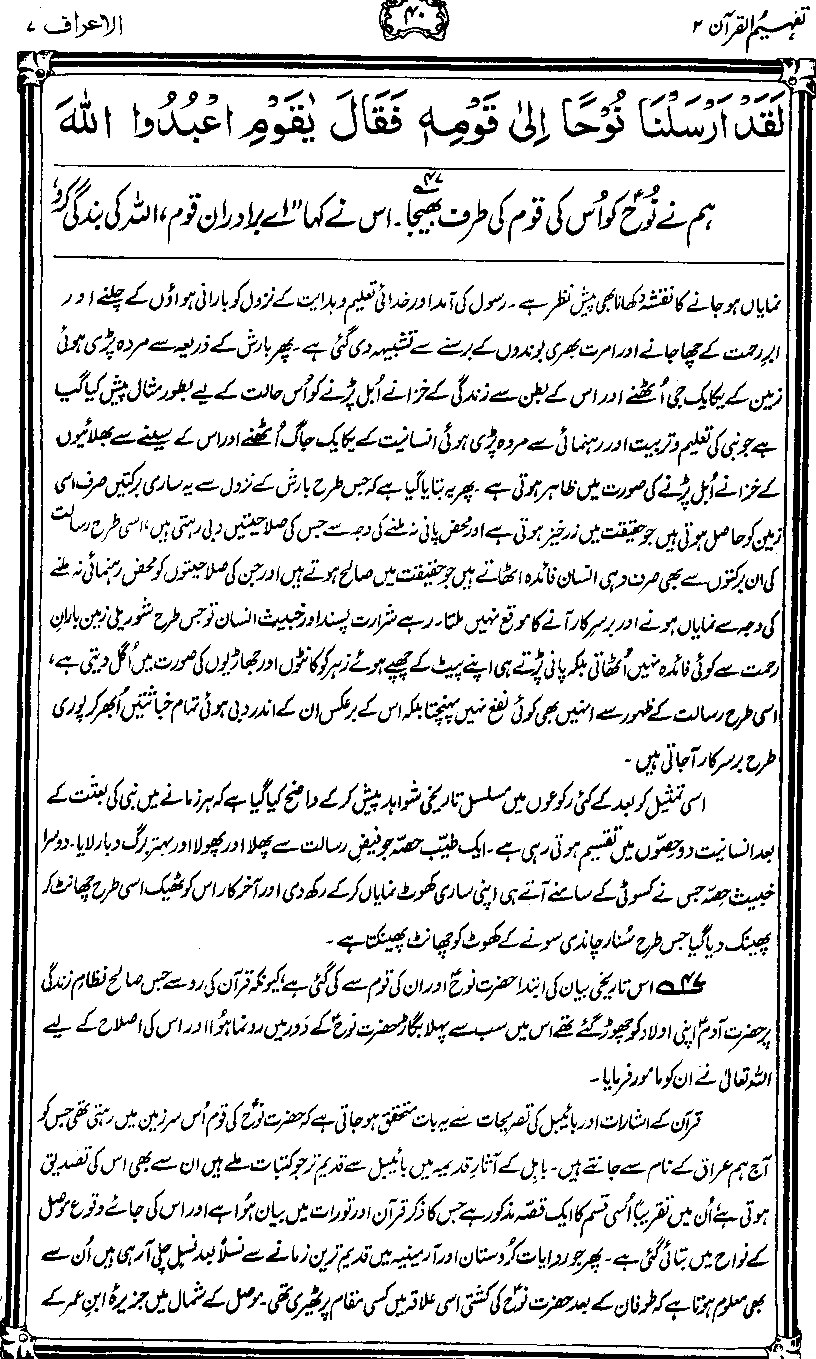 تفہیم القرآن ۲
۴۰
الاعراف ۷
لَقَدْ اَرْسَلْنَا نُوْحًا اِلٰى قَوْمِهٖ فَقَالَ يٰقَوْمِ اعْبُدُوا اللّٰهَ
ہم نے نُوحؑ کو اُس کی قوم کی طرف بھیجا۔۴۷ اس نے کہا "اے برادرانِ قوم، اللہ کی بندگی کرو،
نمایاں ہو جانے کا نقشہ دکھانا بھی پیش نظر ہے۔ رسول کی آمد اور خدائی تعلیم و ہدایت کے نزول کو بارانی ہواؤں کے چلنے اور
ابرِ رحمت کے چھا جانے اور امرت بھری بوندوں کے برسنے سے تشبیہ دی گئی ہے۔ پھر بارش کے ذریعہ سے مردہ پڑی ہوئی
زمین کے یکایک جی اُٹھنے اور اس کے بطن سے زندگی کے خزانے اُبل پڑنے کو اُس حالت کے لیے بطور مثال پیش کیا گیا
ہے جو نبی کی تعلیم و تربیت اور رہنمائی سے مردہ پڑی ہوئی انسانیت کے یکایک جاگ اُٹھنے اور اس کے سینے سے بھلائیوں
کے خزانے اُبل پڑنے کی صورت میں ظاہر ہوتی ہے۔ پھر یہ بتایا گیا ہے کہ جس طرح بارش کے نزول سے یہ ساری برکتیں صرف اسی
زمین کو حاصل ہوتی ہیں جو حقیقت میں زرخیز ہوتی ہے اور محض پانی نہ ملنے کی وجہ سے جس کی صلاحیتیں دبی رہتی ہیں، اسی طرح رسالت
کی ان برکتوں سے بھی صرف وہی انسان فائدہ اٹھاتے ہیں جو حقیقت میں صالح ہوتے ہیں اور جن کی صلاحیتوں کو محض رہنمائی نہ ملنے
کی وجہ سے نمایاں ہونے اور برسرکار آنے کا موقع نہیں ملتا۔ رہے شرارت پسند اور خبیث انسان تو جس طرح شوریلی زمین بارانِ
رحمت سے کوئی فائدہ نہیں اُٹھاتی بلکہ پانی پڑتے ہی اپنے پیٹ کے چھپے ہوئے زہر کو کانٹوں اور جھاڑیوں کی صورت میں اُگل دیتی ہے،
اسی طرح رسالت کے ظہور سے انہیں بھی کوئی نفع نہیں پہنچتا بلکہ اس کے برعکس ان کے اندر دبی ہوئی تمام خباثتیں اُبھر کر پوری
طرح برسرکار آ جاتی ہیں۔
اسی تمثیل کو بعد کے کئی رکوعوں میں مسلسل تاریخی شواہد پیش کر کے واضح کیا گیا ہے کہ ہر زمانے میں نبی کی بعثت کے
بعد انسانیت دو حصّوں میں تقسیم ہوتی رہی ہے۔ ایک طیّب حصّہ جو فیضِ رسالت سے پھلا اور پھولا اور بہتر برگ و بار لایا۔ دوسرا
خبیث حصّہ جس نے کسوٹی کے سامنے آتے ہی اپنی ساری کھوٹ نمایاں کر کے رکھ دی اور آخر کار اس کو ٹھیک اسی طرح چھانٹ کر
پھینک دیا گیا جس طرح سُنار چاندی سونے کے کھوٹ کو چھانٹ پھینکتا ہے۔
۴۷ اس تاریخی بیان کی ابتدا حضرت نوحؑ اور ان کی قوم سے کی گئی ہے، کیونکہ قرآن کی رو سے جس صالح نظامِ زندگی
پر حضرت آدمؑ اپنی اولاد کو چھوڑ گئے تھے اس میں سب سے پہلا بگاڑ حضرت نوحؑ کے دَور میں رونما ہُوا اور اس کی اصلاح کے لیے
اللہ تعالیٰ نے ان کو مامور فرمایا۔
قرآن کے اشارات اور بائیبل کی تصریحات سے یہ بات متحقق ہو جاتی ہے کہ حضرت نوحؑ کی قوم اُس سرزمین میں رہتی تھی جس کو
آج ہم عراق کے نام سے جانتے ہیں۔ بابل کے آثارِ قدیمہ میں بائیبل سے قدیم تر جو کتبات ملے ہیں ان سے بھی اس کی تصدیق
ہوتی ہے، اُن میں تقریباً اُسی قسم کا ایک قصّہ مذکور ہے جس کا ذکر قرآن اور تورات میں بیان ہُوا ہے اور اس کی جائے وقوع موصل
کے نواح میں بتائی گئی ہے۔ پھر جو روایات کُردستان اور آرمینیہ میں قدیم ترین زمانے سے نسلاً بعد نسلٍ چلی آ رہی ہیں اُن سے
بھی معلوم ہوتا ہے کہ طوفان کے بعد حضرت نوحؑ کی کشتی اسی علاقہ میں کسی مقام پر ٹھیری تھی۔ موصل کے شمال میں جزیرۂ ابنِ عمر کے